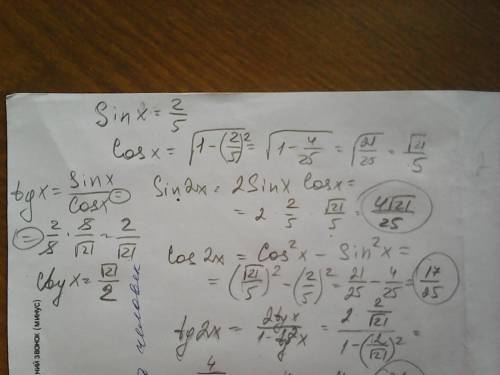 Sin x = 2/5
Cos x = √(1-(2/5)²) = √(1-4/25) = √(21/25) = √21/5
tg x = Sin x/Cos x =
= 2/5 · 5/√21 = 2/√21
ctg x = √21/2
Sin 2x = 2 Sin x Cos x =
= 2 · 2/5 · √21/5 = 4√21/25
Cos 2x = Cos² x - Sin² x =
= (√21/5)² - (2/5)² = 21/25 - 4/25 = 17/25
tg 2x = 2tg x/(1-tg² x) = 2 · 2/√21/(1-(2/√21)²) =
4
звонок (минус)
человек